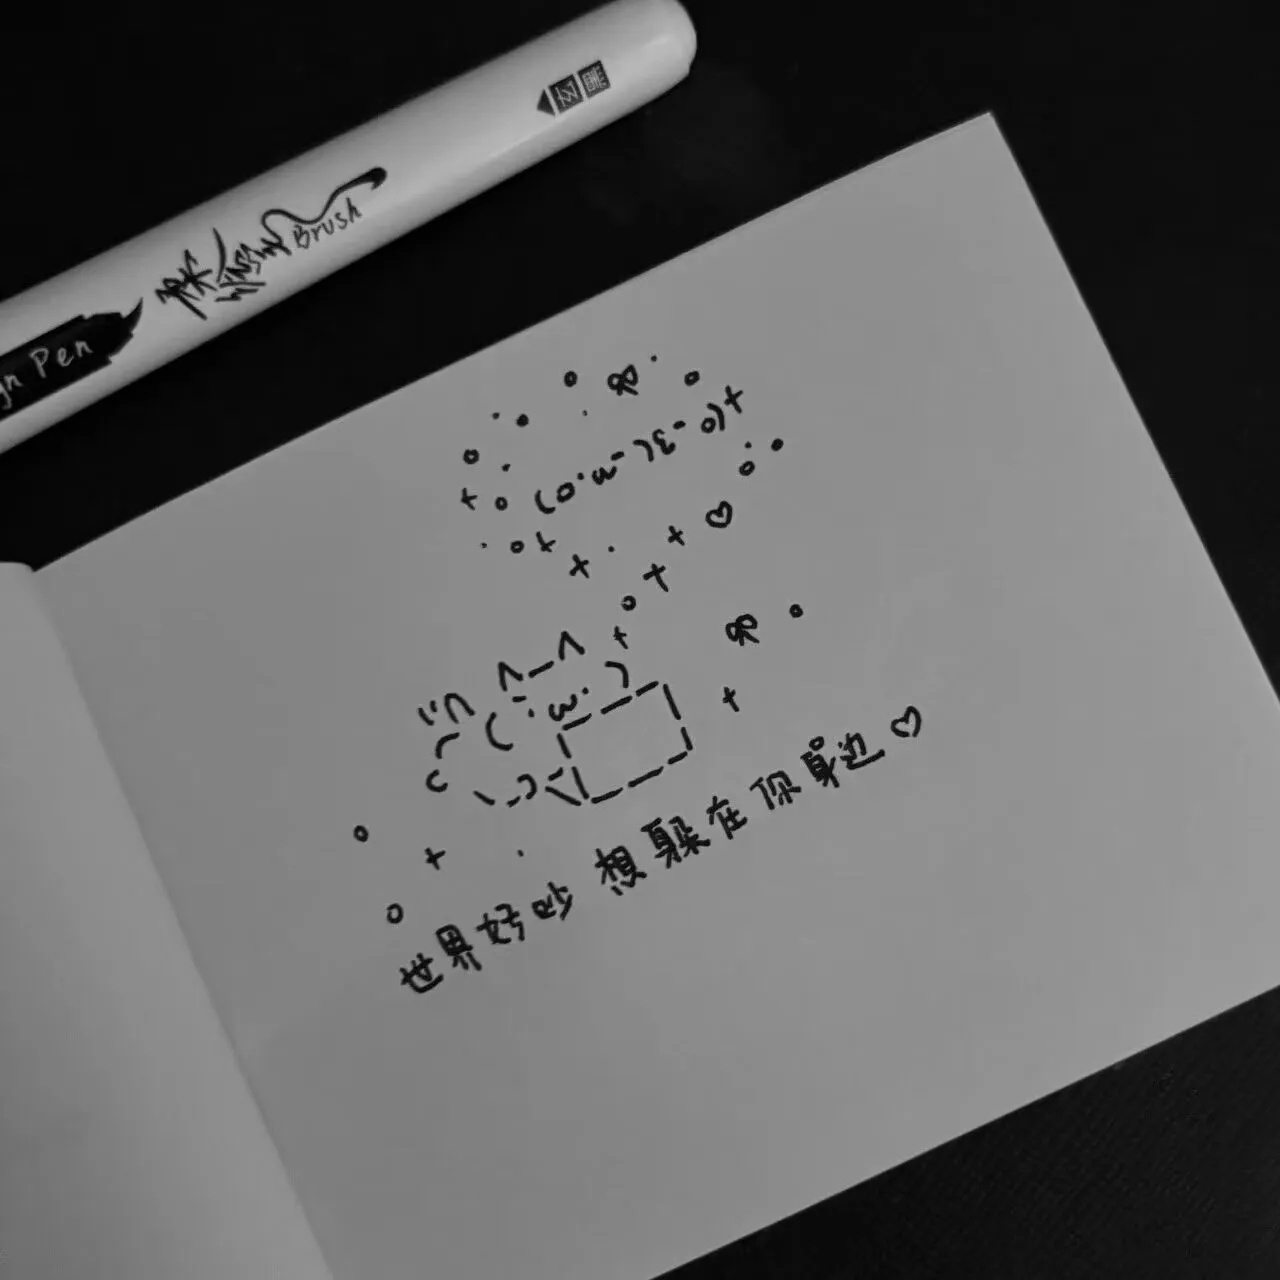 Brush
gn Pen
世界好妙 想躲在你身边♡